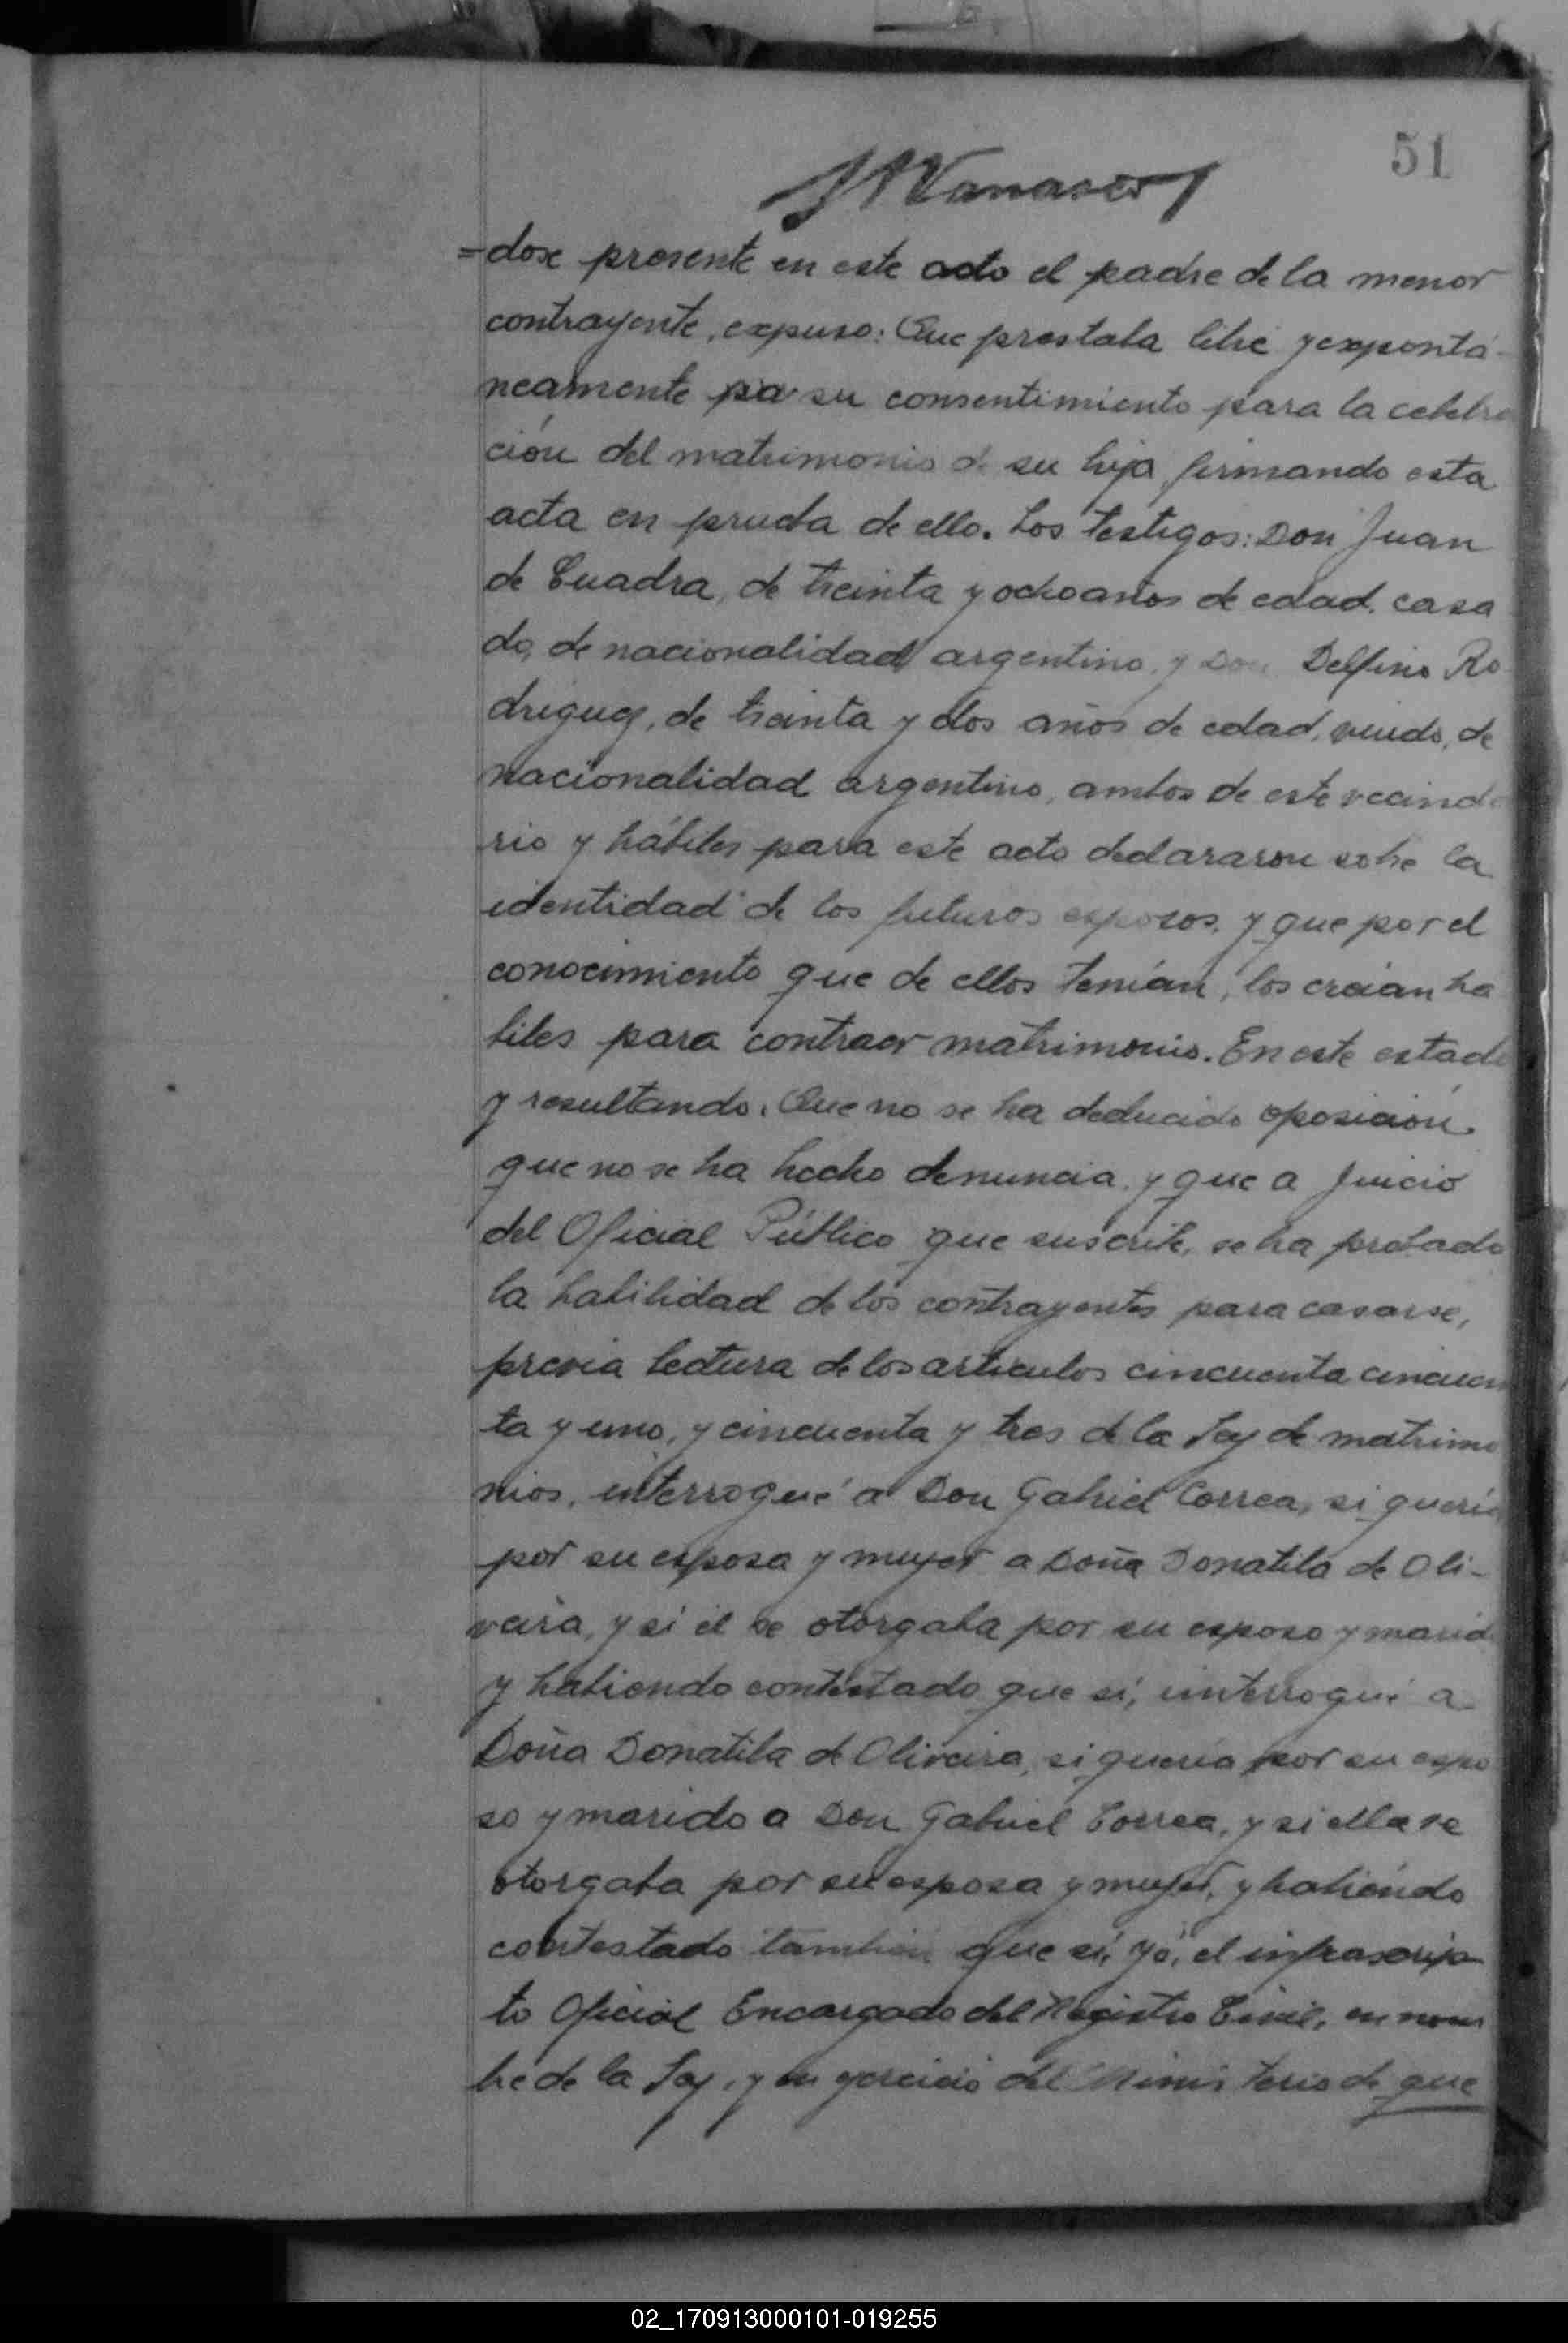 51
=dose presente en este acto el padre de la menor
contrayente, expuso: Que prestaba libre y expontá-
neamente su consentimiento para la celebra
ción del matrimonio de su hija, firmando esta
acta en prueba de ello. Los testigos: Don Juan
de Cuadra, de treinta y ocho años de edad, casa
do, de nacionalidad argentino, y Don Delfino Ro
driguez, de treinta y dos años de edad, viudo, de
nacionalidad argentino, ambos de este vecinda
rio y hábiles para este acto declararon sobre la
identidad de los futuros esposos, y que por el
conocimiento que de ellos tenían, los creían há
biles para contraer matrimonio. En este estado
y resultando: Que no se ha deducido oposición
que no se ha hecho denuncia, y que a Juicio
del Oficial Público que suscribe, se ha probado
la habilidad de los contrayentes para casarse,
previa lectura de los articulos cincuenta cincuen
ta y uno, y cincuenta y tres de la Ley de matrimo
nios, interrogué a Don Gabriel Correa, si quería
por su esposa y mujer a Doña Donatila de Oli-
veira, y si él se otorgaba por su esposo y marido
y habiendo contestado que sí, interrogué a
Doña Donatila de Oliveira, si quería por su espo
so y marido a Don Gabriel Correa, y si ella se
otorgaba por su esposa y mujer, y habiendo
contestado también que sí, yo, el infrascrip
to Oficial Encargado del Registro Civil, en nom
bre de la Ley, y en ejercicio del Ministerio de que
02_170913000101-019255